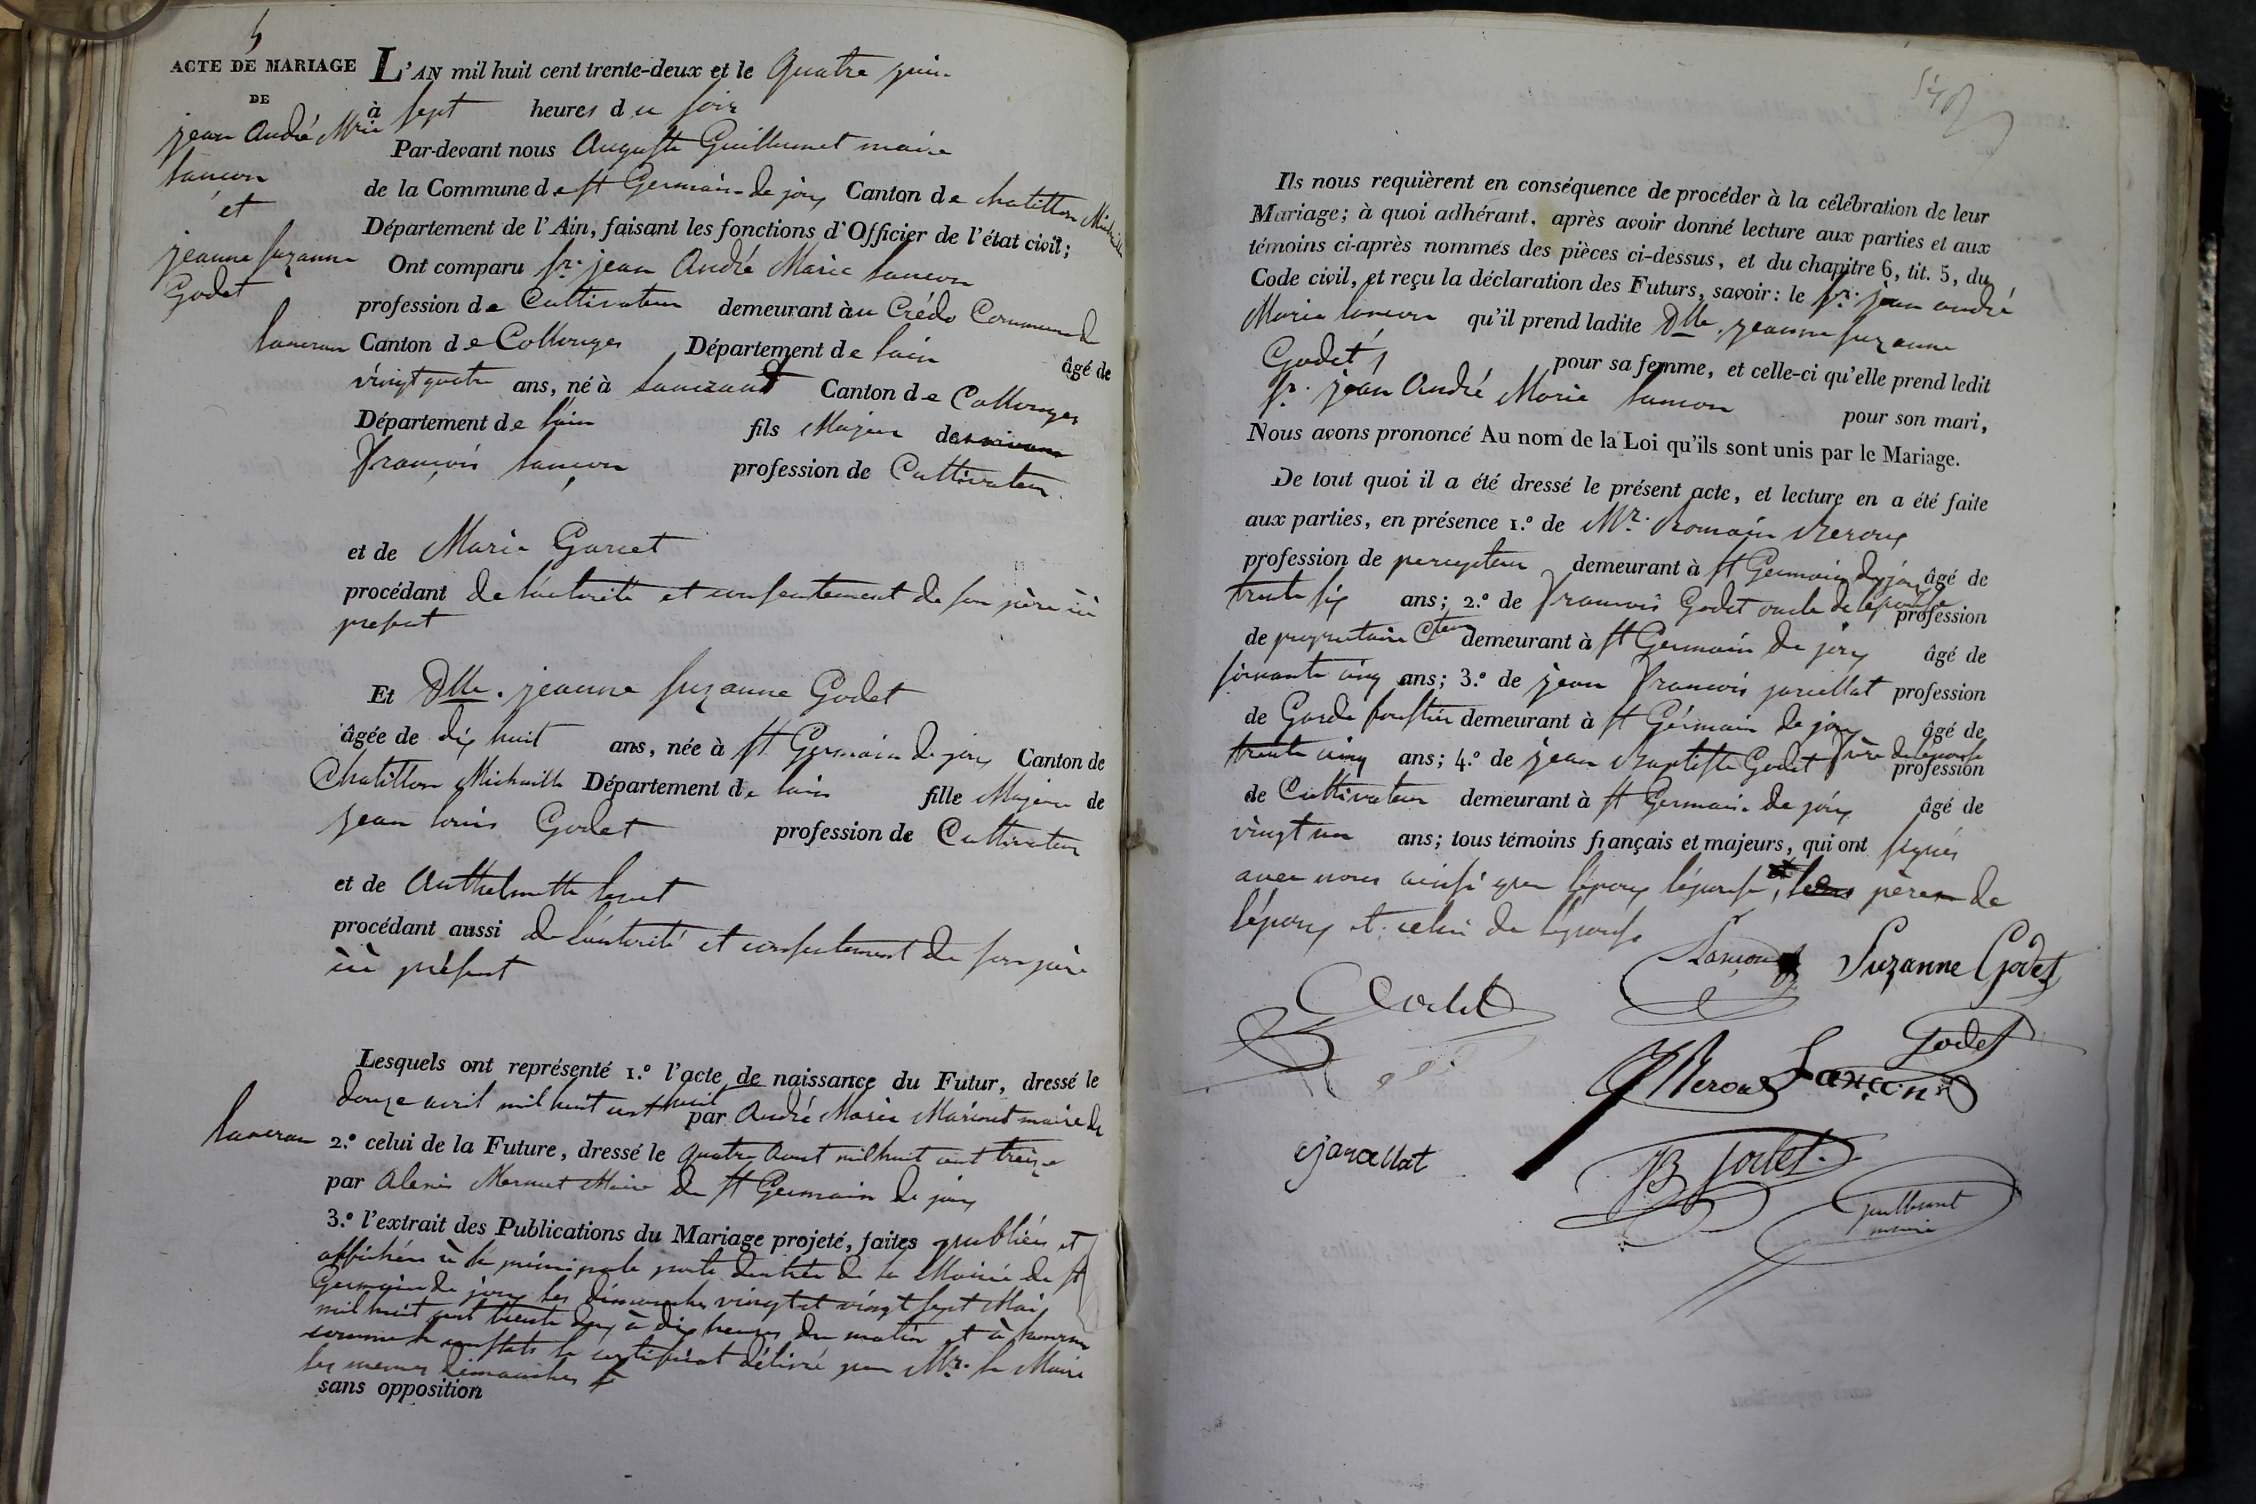 5
ACTE DE MARIAGE
DE
jean André Marie
Lançon
et
jeanne Suzanne
Godet
L'AN mil huit cent trente-deux et le Quatre juin
à Sept heures du soir
Par-devant nous Auguste Guillermet maire
de la Commune de St Germain de joux Canton de Chatillon Michaille
Département de l'Ain, faisant les fonctions d'Officier de l'état civil;
Ont comparu Sr. jean André Marie Lançon
profession de Cultivateur demeurant àu Crédo Commune d
Lancran Canton de Collonges Département de lain âgé de
vingt quatre ans, né à Lancrans Canton de Collonges
Département de lain fils Majeur de
François Lançon profession de Cultivateur
et de Marie Garcet
procédant de lautorité et consentement de son père ici
présent
Et Dlle. jeanne Suzanne Godet
âgée de dix huit ans, née à St Germain de joux Canton de
Chatillon Michaille Département de lain fille Majeure de
jean louis Godet profession de Cultivateur
et de Anthelmette
procédant aussi de lautorité et consentement de son père
ici présent
Lesquels ont représenté 1.º l'acte de naissance du Futur, dressé le
douze avril mil huit cent huit par André Marie Marinet maire de
Lancran 2.º celui de la Future, dressé le quatre Aout mil huit cent treize
par Alexis Mermet Maire de St Germain de joux
3.º l'extrait des Publications du Mariage projeté, faites publiées et
affichées à la principale porte dentrée de la Mairie de St
Germain de joux les dimanches vingt et vingt sept Mai
mil huit cent trente deux à dix heures du matin et à Lancran
comme le constate le certificat délivré par Mr. le Maire
les memes dimanches
sans opposition
Ils nous requièrent en conséquence de procéder à la célébration de leur
Mariage; à quoi adhérant, après avoir donné lecture aux parties et aux
témoins ci-après nommés des pièces ci-dessus, et du chapitre 6, tit. 5, du
Code civil, et reçu la déclaration des Futurs, savoir: le Sr. jean andré
Marie Lançon qu'il prend ladite Dlle. jeanne Suzanne
Godet pour sa femme, et celle-ci qu'elle prend ledit
Sr. jean André Marie Lançon pour son mari,
Nous avons prononcé Au nom de la Loi qu'ils sont unis par le Mariage.
De tout quoi il a été dressé le présent acte, et lecture en a été faite
aux parties, en présence 1.º de Mr. Romain
profession de percepteur demeurant à St Germain de joux âgé de
trente six ans; 2.º de François Godet oncle de lépouse profession
de propriétaire Cteur demeurant à St Germain de joux âgé de
soixante cinq ans; 3.º de jean François jarcellat profession
de Garde forestier demeurant à St Germain de joux âgé de
trente cinq ans; 4.º de jean Baptiste Godet frère de lépouse profession
de Cultivateur demeurant à St Germain de joux âgé de
vingt un ans; tous témoins français et majeurs, qui ont signés
avec nous ainsi que lépoux lépouse, père de
lépoux et celui de lépouse
Lançon Suzanne Godet
Godet
Godet
Lançon
jarcellat
JB Godet
Guillermet
maire